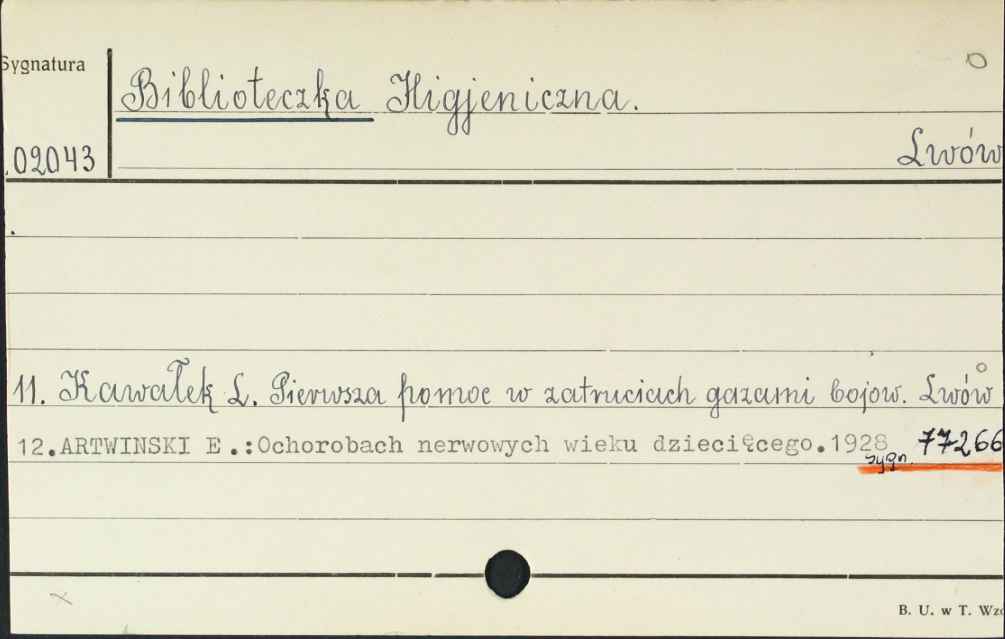 Sygnatura
Biblioteczka Higjeniczna.
02043
Lwów
11. Kawałek L. Pierwsza pomoc w zatruciach gazami bojow. Lwów
12.ARTWINSKI E.:Ochorobach nerwowych wieku dziecięcego.1928 sygn. 77266
B. U. w T.